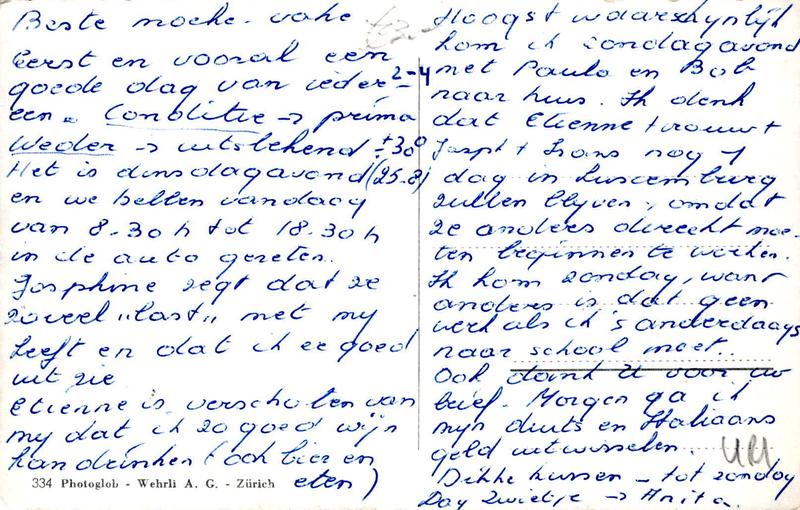 Beste moeke - vake
Eerst en vooral een
goede dag van ieder-
een. Conditie → prima
Weder → uitstekend ± 30°
Het is dinsdagavond (25-8)
en we hebben vandaag
van 8.30h tot 18.30h
in de auto gezeten.
Josphine zegt dat ze
zoveel "last" met my
heeft en dat ik er goed
uit zie
Etienne is verschoten van
my dat ik zo goed wijn
kan drinken (ook bier en
eten)
334 Photoglob - Wehrli A. G. - Zürich
2-4
Hoogst waarschynlyk
kom ik zondagavond
met Paula en Bob
naar huis. Ik denk
dat Etienne + vrouw +
Josph + Frans nog 1
dag in Luxemburg
zullen blyven, omdat
ze anders direckt moe-
ten beginnen te werken.
Ik kom zondag, want
anders is dat geen
werk als ik 's anderdaags
naar school moet..
Ook dank U voor uw
brief. Morgen ga ik
myn duits en Italiaans
geld uitwisselen.
Dikke kussen - tot zondag
Dag Zwietje → Anita.